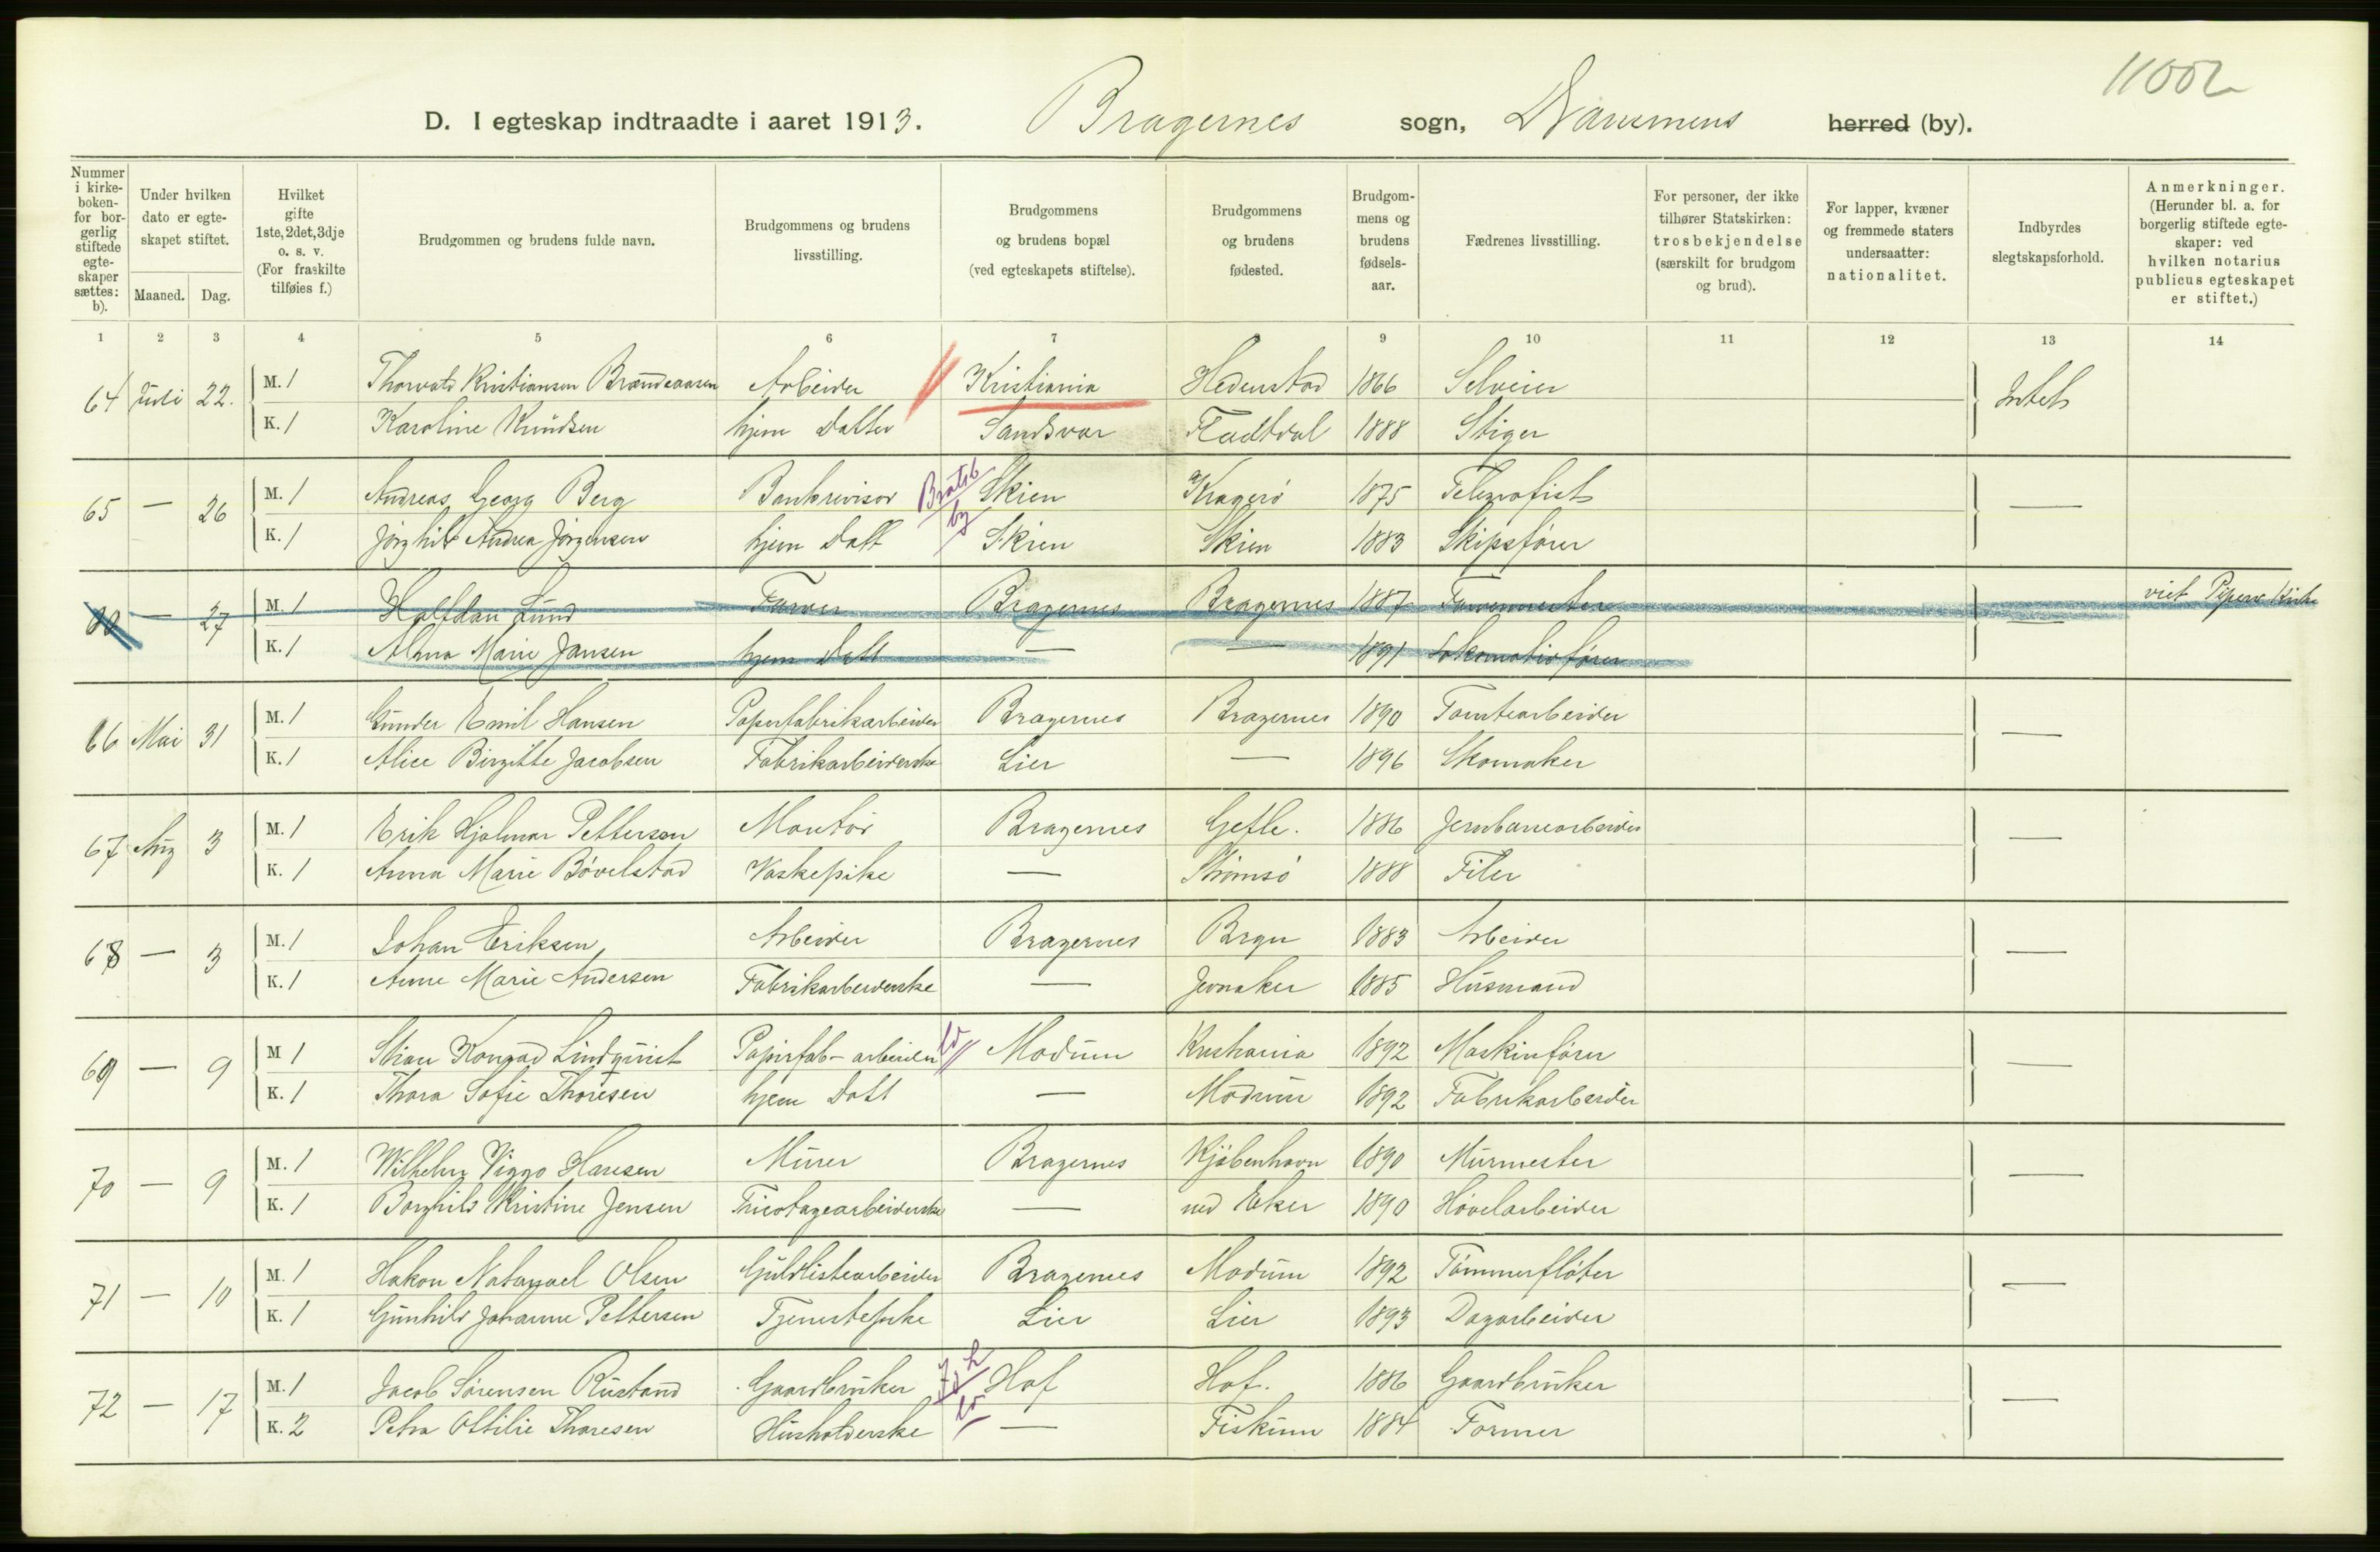 11002
D. I egteskap indtraadte i aaret 1913. Bragernes sogn, Drammens herred (by).
Nummer i kirkeboken- for borgerlig stiftede egteskaper sættes: b).
Under hvilken dato er egteskapet stiftet.
Maaned. Dag.
Hvilket gifte 1ste, 2det, 3dje o. s. v. (For fraskilte tilføies f.)
Brudgommen og brudens fulde navn.
Brudgommens og brudens livsstilling.
Brudgommens og brudens bopæl (ved egteskapets stiftelse).
Brudgommens og brudens fødested.
Brudgommens og brudens fødselsaar.
Fædrenes livsstilling.
For personer, der ikke tilhører Statskirken: trosbekjendelse (særskilt for brudgom og brud).
For lapper, kvæner og fremmede staters undersaatter: nationalitet.
Indbyrdes slegtskapsforhold.
Anmerkninger. (Herunder bl. a. for borgerlig stiftede egteskaper: ved hvilken notarius publicus egteskapet er stiftet.)
1 2 3 4 5 6 7 8 9 10 11 12 13 14
64 Juli 22. M. 1 Thorvald Kristiansen Brændaasen Arbeider Kristiania Hedenstad 1866 Selveier Intet
K. 1 Karoline Knudsen hjem Datter Sandsvær 1888 Stiger
65 — 26 M. 1 Andreas Georg Berg Bankrevisor Bratsb by Skien Kragerø 1875 Telegrafist —
K. 1 Jørghild Andrea Jørgensen hjem Datt Skien Skien 1883 Skipsfører
— 27 M. 1 Halfdan Lund Farver Bragernes Bragernes 1887 Farvermester — viet Pipervi Kirke
K. 1 Alma Marie Jansen hjem Datt — — 1891 Lokomotivfører
66 Mai 31 M. 1 Gunder Emil Hansen Papirfabrikarbeider Bragernes Bragernes 1890 Tomtearbeider —
K. 1 Alice Birgitte Jacobsen Fabrikarbeiderske Lier — 1896 Skomaker
67 Aug 3 M. 1 Erik Hjalmar Pettersen Montør Bragernes Gefle. 1886 Jernbanearbeider —
K. 1 Anna Marie Bøvelstad Vaskepike — Strømsø 1888 Filer
68 — 3 M. 1 Johan Eriksen Arbeider Bragernes Brgn 1883 Arbeider —
K. 1 Anne Marie Andersen Fabrikarbeiderske — Jevnaker 1885 Husmand
69 — 9 M 1 Stian Konrad Lindquist Papirfab-arbeider Modum Kristiania 1892 Maskinfører —
K. 1 Thora Sofie Thoresen hjem Datt — Modum 1892 Fabrikarbeider
70 — 9 M. 1 Wilhelm Viggo Hansen Murer Bragernes Kjøbenhavn 1890 Murmester —
K. 1 Borghild Kristine Jensen Tricotagearbeiderske — ned Eker 1890 Høvelarbeider
71 — 10 M. 1 Hakon Natanael Olsen Guldlistearbeider Bragernes Modum 1892 Tømmerfløter —
K. 1 Gunhild Johanne Pettersen Tjenestepike Lier Lier 1893 Dagarbeider
72 — 17 M. 1 Jacob Sørensen Rustand Gaardbruker Hof Hof. 1886 Gaardbruker —
K. 2 Petra Ottilie Thoresen Husholderske — Fiskum 1884 Former